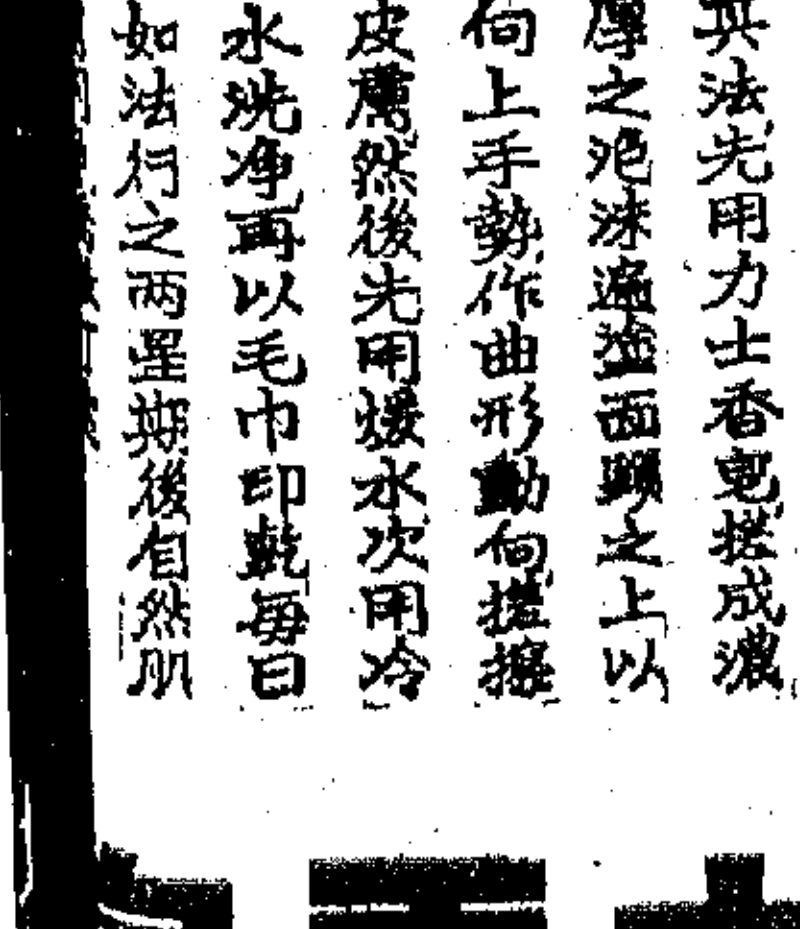 其法先用力士香皂搓成濃
厚之泡沫遍塗面頸之上以
向上手勢作曲形動向搓擦
皮膚然後先用煖水次用冷
水洗净再以毛巾印乾每日
如法行之两星期後自然肌